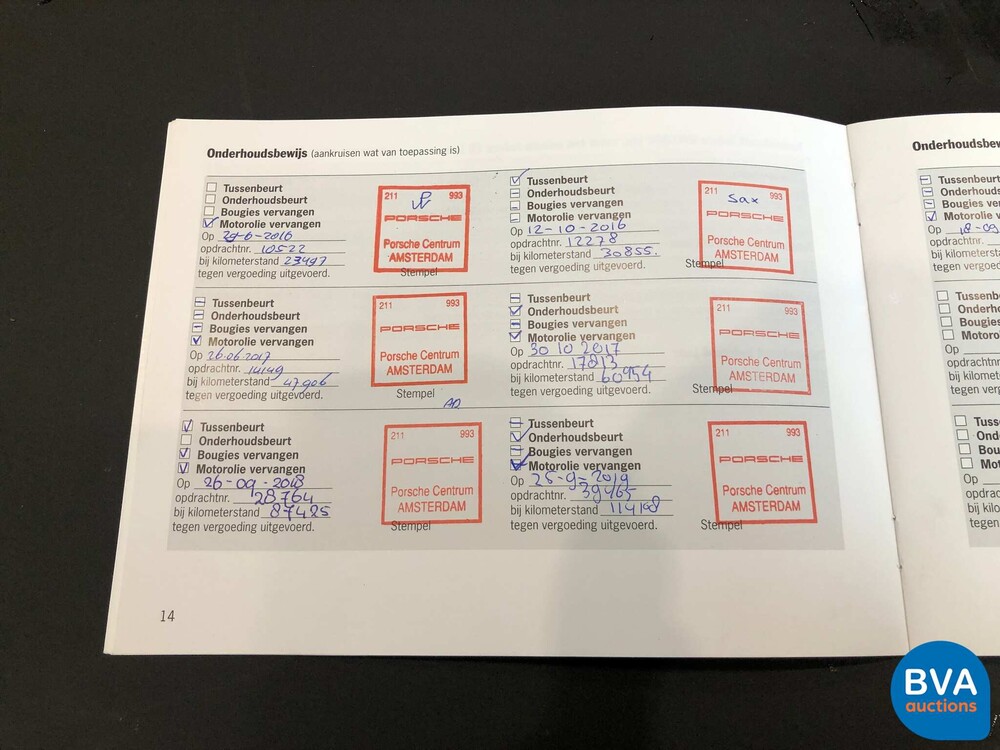 Onderhoudsbewijs (aankruisen wat van toepassing is)
Tussenbeurt
Onderhoudsbeurt
Bougies vervangen
Motorolie vervangen
Op 29-6-2016
opdrachtnr. 10522
bij kilometerstand 23497
tegen vergoeding uitgevoerd.
211 993
PORSCHE
Porsche Centrum
AMSTERDAM
Stempel
Tussenbeurt
Onderhoudsbeurt
Bougies vervangen
Motorolie vervangen
Op 12-10-2016
opdrachtnr. 12278
bij kilometerstand 30855.
tegen vergoeding uitgevoerd.
211 993
sax
PORSCHE
Porsche Centrum
AMSTERDAM
Stempel
Tussenbeurt
Onderhoudsbeurt
Bougies vervangen
Motorolie vervangen
Op 26.06.2017
opdrachtnr. 14149
bij kilometerstand 47906
tegen vergoeding uitgevoerd.
211 993
PORSCHE
Porsche Centrum
AMSTERDAM
Stempel
Tussenbeurt
Onderhoudsbeurt
Bougies vervangen
Motorolie vervangen
Op 30 10 2017
opdrachtnr. 17813
bij kilometerstand 60954
tegen vergoeding uitgevoerd.
211 993
PORSCHE
Porsche Centrum
AMSTERDAM
Stempel
Tussenbeurt
Onderhoudsbeurt
Bougies vervangen
Motorolie vervangen
Op 26-09-2018
opdrachtnr. 28764
bij kilometerstand 87425
tegen vergoeding uitgevoerd.
211 993
PORSCHE
Porsche Centrum
AMSTERDAM
Stempel
Tussenbeurt
Onderhoudsbeurt
Bougies vervangen
Motorolie vervangen
Op 25-9-2019
opdrachtnr. 39465
bij kilometerstand 114198
tegen vergoeding uitgevoerd.
211 993
PORSCHE
Porsche Centrum
AMSTERDAM
Stempel
14
BVA
auctions